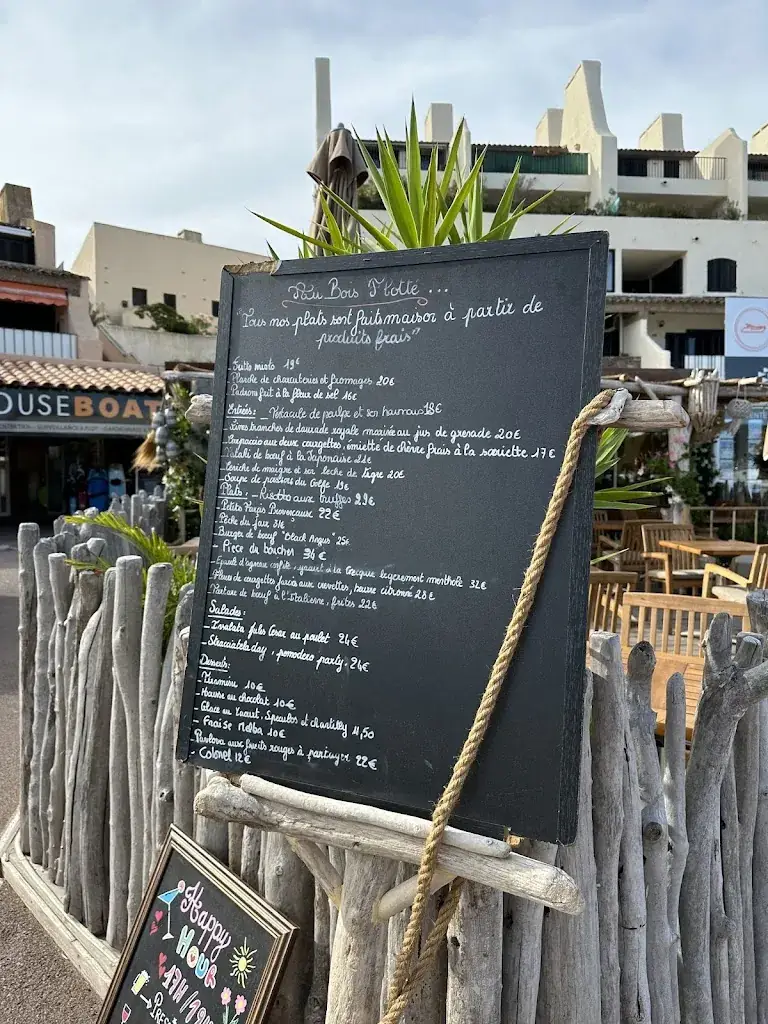 OUSEBOAT
Au Bois Flotté ...
"Tous nos plats sont faits maison à partir de
produits frais"
- Fritto misto 19€
- Planche de charcuteries et fromages 20€
- Padrons frit à la fleur de sel 16€
Entrées: - Tentacule de poulpe et son houmous 18€
- Fines tranches de daurade royale marinée au jus de grenade 20€
- Carpaccio aux deux courgettes, émiette de chèvre frais à la sariette 17€
- Tataki de boeuf à la Japonaise 21€
- Ceviche de maigre et son leche de tigre 20€
- Soupe de poissons du Golfe 19€
Plats: - Risotto aux truffes 29€
- Petits Farcis Provencaux 22€
- Pêche du jour 31€
- Burger de boeuf "Black Angus" 25€
- Pièce du boucher 34€
- Epaule d'agneau confite, yaourt à la Grecque légèrement mentholé 32€
- Fleurs de courgettes farcies aux crevettes, beurre citronné 28€
- Tartare de boeuf à l'Italienne, frites 22€
Salades:
- Insalata Jules Cesar au poulet 24€
- Stracciatela day, pomodoro party 24€
Desserts:
- Tiramisu 10€
- Mousse au chocolat 10€
- Glace au Yaourt, Speculos et chantilly 4,50
- Fraise Melba 10€
Pavlova aux fruits rouges à partager 22€
Colonel 12€
Happy
HOUR
17H/19H